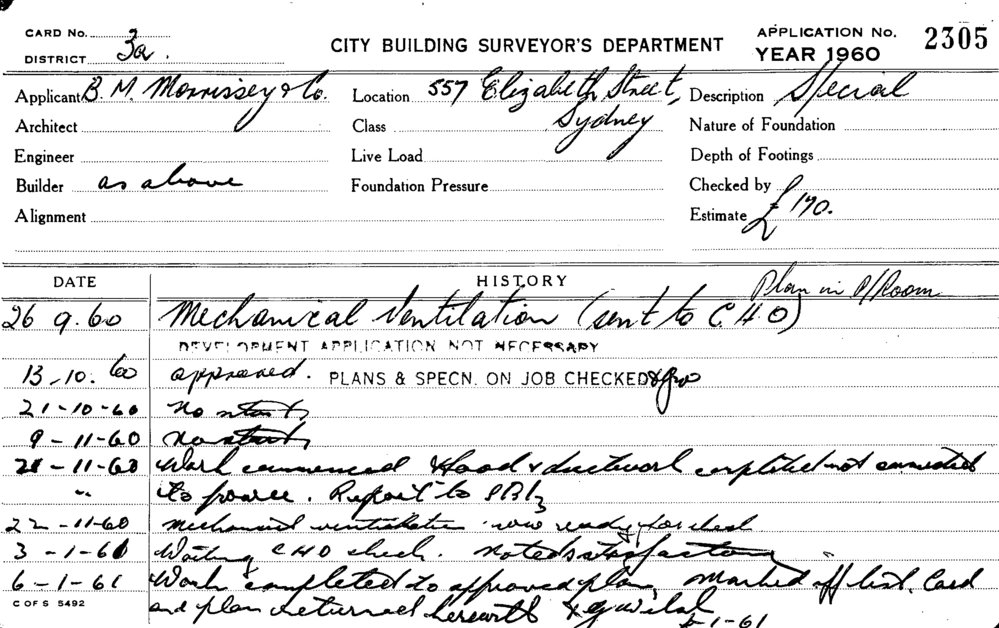 CARD No. 3a.
DISTRICT
CITY BUILDING SURVEYOR'S DEPARTMENT
APPLICATION No. 2305
YEAR 1960
Applicant B. M. Morrissey & Co. Location 557 Elizabeth Street, Sydney Description Special
Architect Class Nature of Foundation
Engineer Live Load Depth of Footings
Builder as above Foundation Pressure Checked by
Alignment Estimate £190.
DATE HISTORY Plan in P/Room
26 9.60 Mechanical Ventilation (sent to C.H.O)
DEVELOPMENT APPLICATION NOT NECESSARY
13-10.60 approved. PLANS & SPECN. ON JOB CHECKED
21-10-60 No start
9-11-60 No start
21-11-60 Work commenced Hood & ductwork completed not connected
" to power. Report to
22-11-60 Mechanical ventilation now ready for check
3-1-61 Waiting CHO check. Noted satisfactory
6-1-61 Work completed to approved plan, Marked off list. Card
C OF S 5492
and plan returned herewith
-1-61